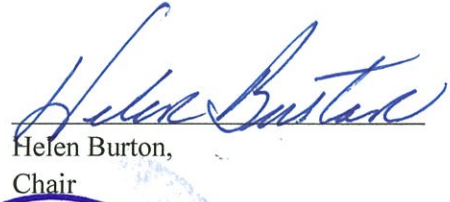 Helen Burton
Helen Burton,
Chair